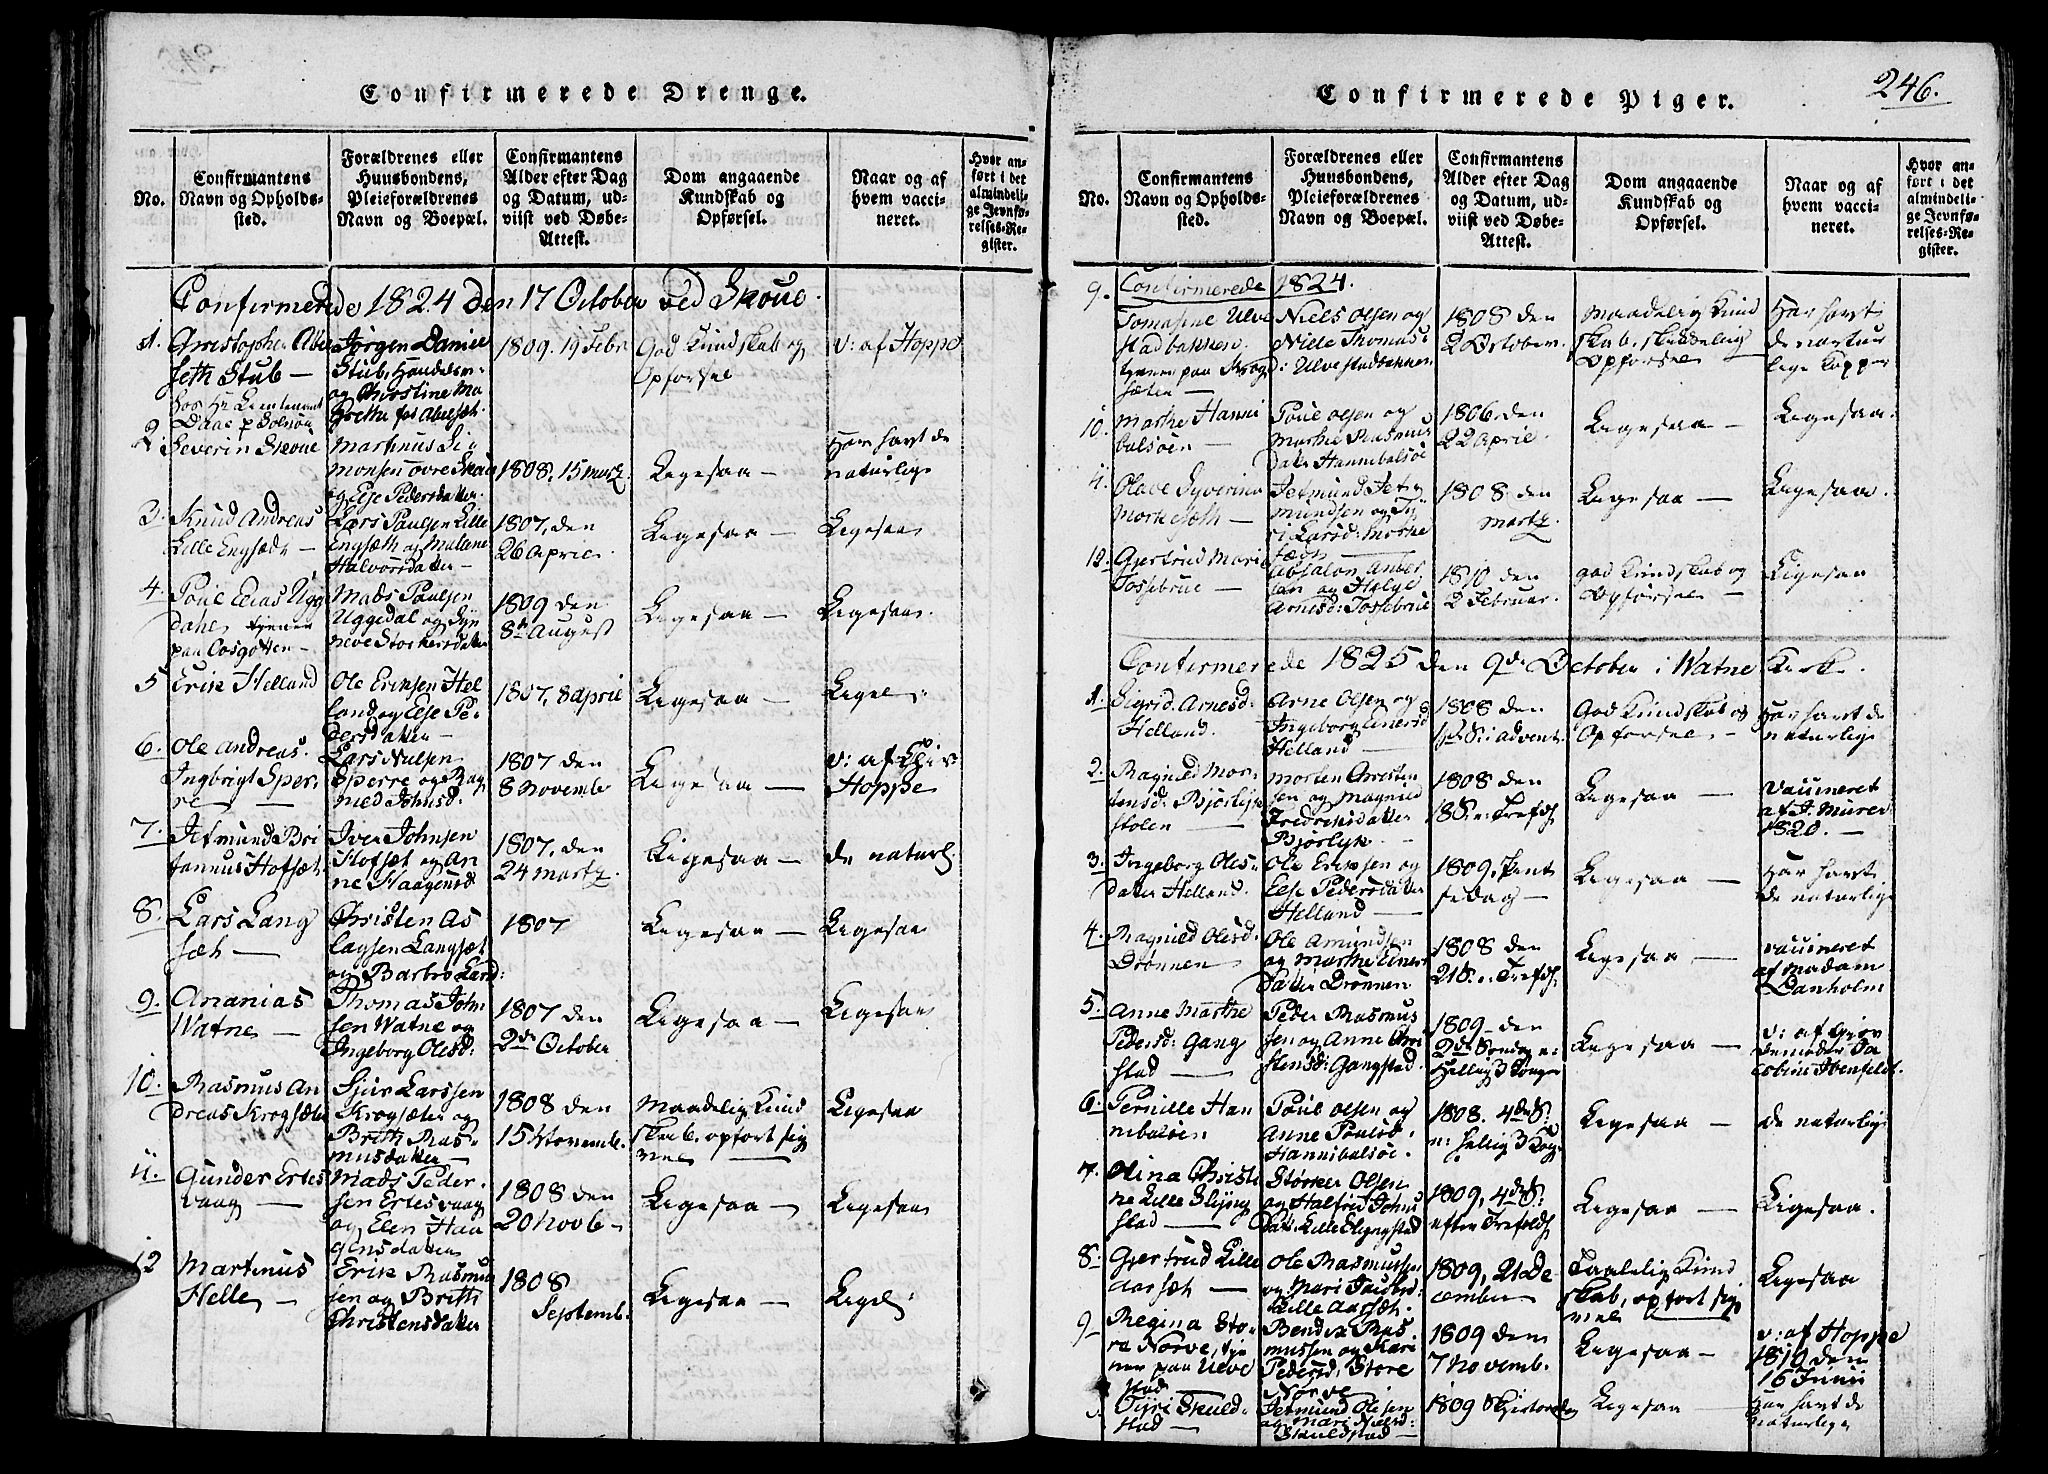 Confirmerede Drenge.
No.
Confirmantens
Navn og Opholds-
sted.
Forældrenes eller
Huusbondens,
Pleieforældrenes
Navn og Boepæl.
Confirmantens
Alder efter Dag
og Datum, ud-
viist ved Døbe-
Attest.
Dom angaaende
Kundskab og
Opførsel.
Naar og af
hvem vacci-
neret.
Hvor an-
ført i det
almindeli-
ge Jevnfø-
relses-Re-
gister.
Confirmerede 1824 den 17 October ved Skoue.
1.
Christopher Abel
seth Stub —
hos Hr Lieutenant
Daae p
Jørgen Daniel
Stub, Handelsm.
og Christine Ma
grethe
1809. 19 Febr
God Kundskab og
Opførsel
v: af Hoppe
2.
Severin Skoue
Martinus Si
monsen øvre Skoue
og Else Pedersdatter.
1808. 15 martz.
Ligesaa —
Har havt de
naturlige
3.
Knud Andreas
Lille Engsæth —
Lars Poulsen Lille
Engsæth og Malene
Halvorsdatter —
1807, den
26 April.
Ligesaa —
Ligesaa
4.
Poul Elias Ugg
dahl tjener
paa
Mads Poulsen
Uggedal og Syn
neve Storkersdatter
1809 den
8de August
Ligesaa —
Ligesaa.
5
Erik Helland
Ole Eriksen Hel
land og Else Pe
dersdatter —
1807, 8 April
Ligesaa —
Ligel:
6.
Ole Andreas
Ingbrigt Sper-
re —
Lars Nilsen
Sperre og Rag
nild Johnsd.
1807 den
8 Novemb
Ligesaa —
v: af Chir
Hoppe
7.
Jetmund Bri
tannus Hofsæt.
Iver Johnsen
Hofsæt og An
ne Haagensd
1807, den
24 martz.
Ligesaa —
de naturl.
8.
Lars Lang
sæth —
Christen As
lagsen Langsæt
og Barbro Larsd:
1807
Ligesaa —
Ligesaa
9.
Ananias
Watne —
Thomas John
sen Watne og
Ingeborg Olesd:
1807 den
2de October
Ligesaa —
Ligesaa
10.
Rasmus An
dreas Krogsæter
Sjur Larssen
Krogsæter og
Brith Ras-
musdatter —
1808 den
15 Novemb.
Maadelig Kund
skab, opført sig
vel —
Ligesaa
11.
Gunder Ertes
vaag —
Mads Peder
sen Ertesvaag
og Elen Haa
gensdatter
1808 den
20 Novb —
Ligesaa —
Ligesaa
12
Martinus
Helle —
Erik Rasmus
sen og Brith
Christensdatter
1808
Septemb.
Ligesaa —
Ligel:
246.
Confirmerede Piger.
No.
Confirmantens
Navn og Opholds-
sted.
Forældrenes eller
Huusbondens,
Pleieforældrenes
Navn og Boepæl.
Confirmantens
Alder efter Dag
og Datum, ud-
viist ved Døbe-
Attest.
Dom angaaende
Kundskab og
Opførsel.
Naar og af
hvem vacci-
neret.
Hvor an-
ført i det
almindeli-
ge Jevnfø-
relses-Re-
gister.
Confirmerede 1824.
9.
Tomasine Ulve
stadbakken.
tjener paa Krog
sæten —
Niels Olsen og
Nille Thomas
d: Ulvestadbakken
1808 den
2 October.
Maadelig Kund
skab, skikkelig
Opførsel
Har havt
de natur
lige Kopper
10.
Marthe Hanni
balsøen —
Poul Olsen og
Marthe Rasmus
datr Hannibalsøe
1806. den
22 April.
Ligesaa —
Ligesaa.
11.
Olave Syverine
Morkesæth —
Jetmund Jet
mundsen og Sy
ri Larsd: Morke
sæth —
1808 den
martz.
Ligesaa —
Ligesaa.
12.
Gjertrud Marie
Tossebrue —
Absalon Ander
sen og Helge
Arnesd: Tossebrue
1810 den
2 Februar.
god Kundskab og
Opførsel —
Ligesaa
Confirmerede 1825 den 9de October i Watne Kirke.
1.
Sigrid Arnesd:
Helland.
Arne Olsen og
Ingeborg Einersd
Helland —
1808 den
S: i advent
God Kundskab og
Opførsel —
Har havt de
naturlige
2.
Ragnild Mor-
tensd: Bjørlyk
stolen —
Morten Christen
sen og Magnild
Fredriksdatter
Bjørlyk. —
1808 den
18 S: e: Trefdh
Ligesaa —
Vaccineret
af J. Murer
1820. —
3.
Ingeborg Oles-
datter Helland.
Ole Eriksen og
Else Pedersdatter
Helland —
1809, Pent
sedag —
Ligesaa —
Har havt
de naturlige
4.
Ragnild Olesd:
Drønnen —
Ole Amundsen
og Marthe Einers
datter Drønnen
1808 den
21 S. e. Trefdh.
Ligesaa —
Vaccineret
af Madam
Danholm
5.
Anne Marthe
Pedersd: Gang
stad —
Peder Rasmus
sen og Anne Chri
stensd: Gangstad.
1809 den
2de Søndag e:
Hellig 3 Konger
Ligesaa —
v: af Gior
demoder Ja
cobine
6.
Pernille Han
nibalsøen
Poul Olsen og
Anne Poulsd:
Hannibalsøe.
1808. 4de S:
e: hellig 3 Kog.
Ligesaa —
de naturlige
7.
Olina Christi
ne Lille Slyng
stad —
Størker Olsen
og Halfrid Johns
datr Lille Slyngstad
1809, 4de S:
efter Trefoldh
Ligesaa —
Ligesaa.
8.
Gjertrud Lille
aarsæt —
Ole Rasmussen
og Mari
Lille Aarsæt.
1809, 21 De
cember —
Taalelig Kund
skab, opført sig
vel —
Ligesaa
9.
Regina Sto-
re Norve, tje
ner paa Ulve
stad
Bendix Ras-
mussen og Kari
Pedersd: Store
Norve
1809 den
7 Novemb.
Ligesaa —
v: af Hoppe
1810 den
16 Junii
Siri Skuld-
stad —
Jetmund Olsen
og Mari Nielsd:
Skuldstad —
1809 Skjertorsdag
Ligesaa —
Har havt de
naturlige